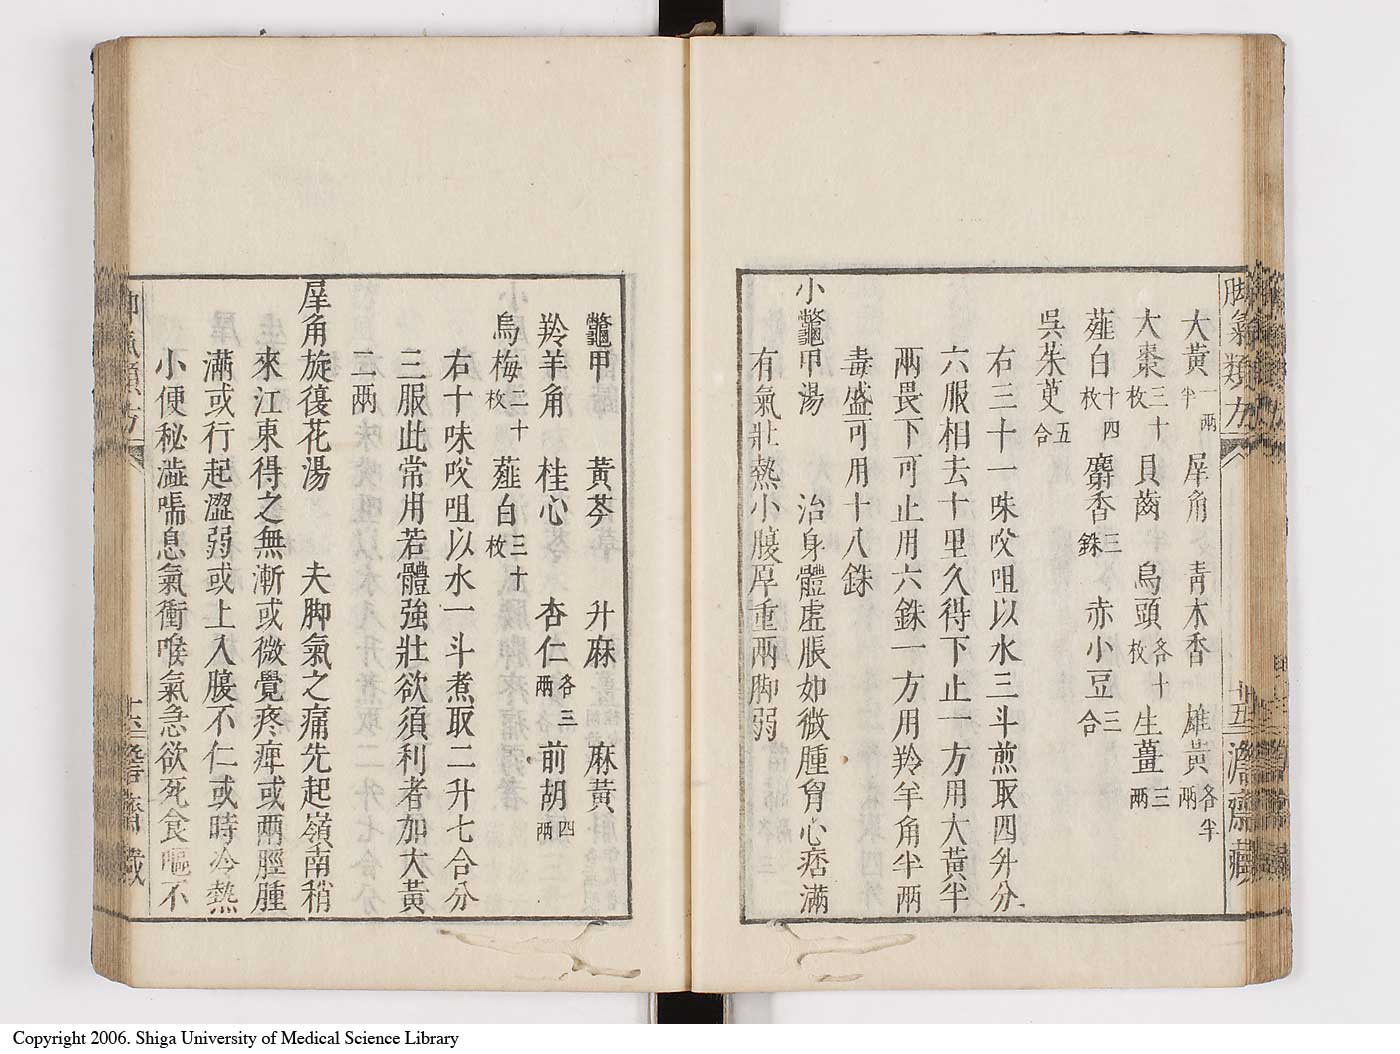 脚氣類方
十五
澹齋藏
大黃一兩半 犀角 青木香 雄黃各半兩
大棗三十枚 貝齒 烏頭各十枚 生薑三兩
薤白十四枚 麝香三銖 赤小豆三合
吳茱萸五合
右三十一味㕮咀以水三斗煎取四升分
六服相去十里久得下止一方用大黃半
兩畏下可止用六銖一方用羚羊角半兩
毒盛可用十八銖
小鼈甲湯 治身體虛脹如微腫胷心痞滿
有氣壯熱小腹厚重兩脚弱
鼈甲 黃芩 升麻 麻黃
羚羊角 桂心 杏仁各三兩 前胡四兩
烏梅二十枚 薤白三十枚
右十味㕮咀以水一斗煮取二升七合分
三服此常用若體強壯欲須利者加大黃
二兩
犀角旋復花湯 夫脚氣之痛先起嶺南稍
來江東得之無漸或微覺疼痺或兩脛腫
滿或行起澀弱或上入腹不仁或時冷熱
小便秘澁喘息氣衝喉氣急欲死食嘔不
脚氣類方
十六
澹齋藏
Copyright 2006. Shiga University of Medical Science Library